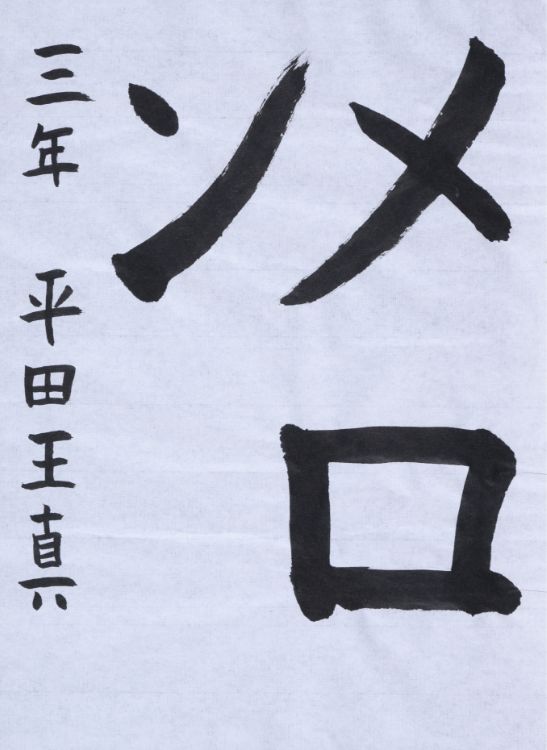 メロ
ン
三年 平田王真